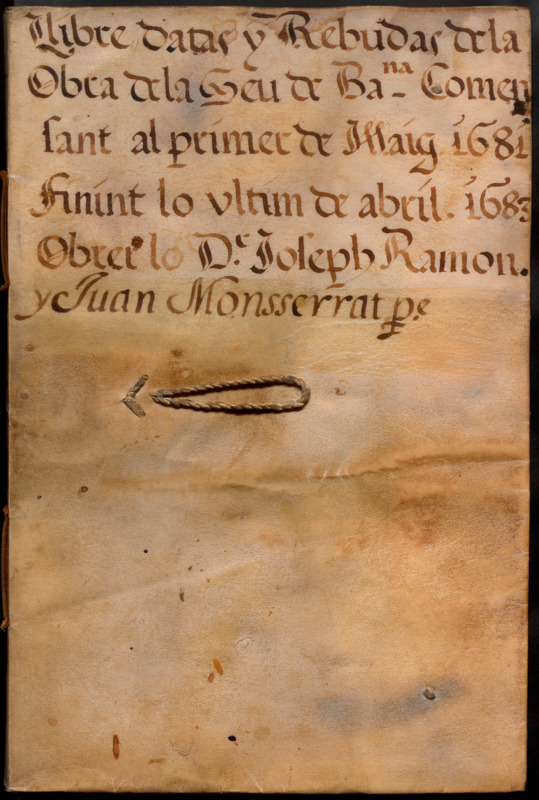 Llibre datas y Rebudas dela
Obra dela Seu de Ba.na Comen
sant al primer de Maig 1681
finint lo ultim de abril. 1683
Obrer lo D.r Joseph Ramon.
y Juan Monsserrat p.e